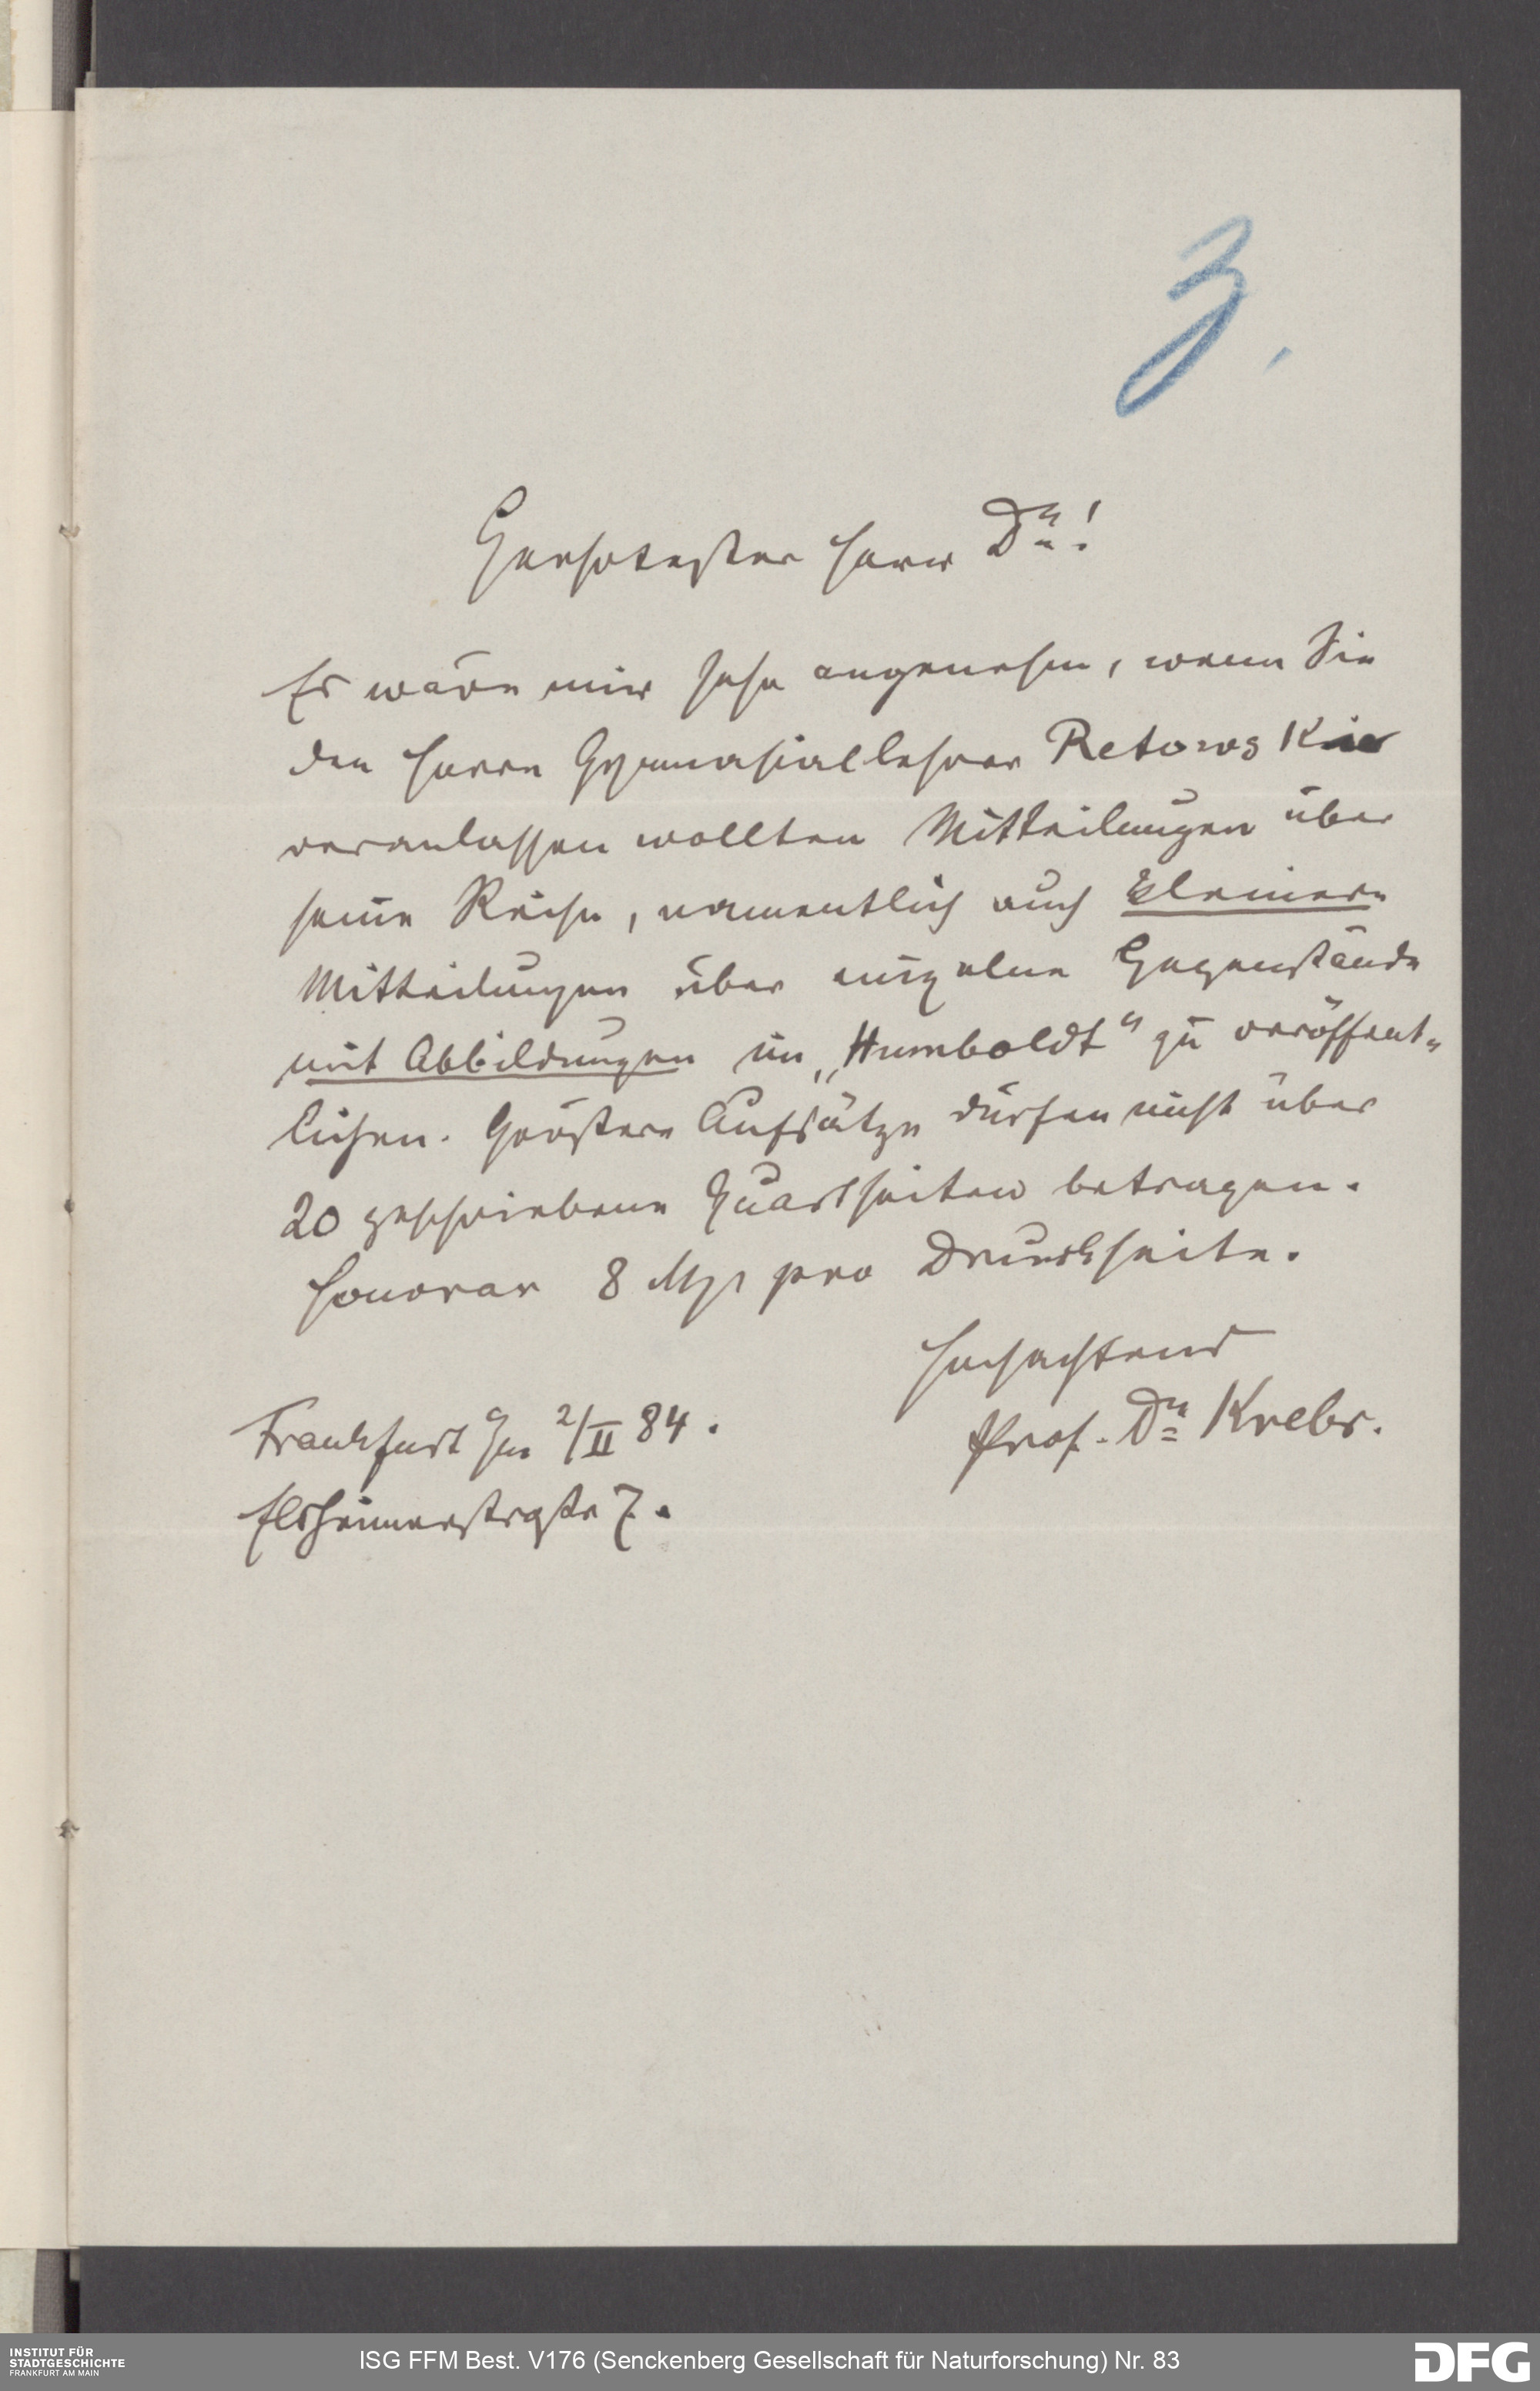 3.
Geehrtester Herr Dr!
Es wäre mir sehr angenehm, wenn Sie
den Herrn Gymnasiallehrer Retowski
veranlassen wollten Mitteilungen über
seine Reise, namentlich auch kleinere
Mitteilungen über einzelne Gegenstände
mit Abbildungen im „Humboldt“ zu veröffent-
lichen. Größere Aufsätze dürfen nicht über
20 geschriebene Quartseiten betragen.
Honorar 8 Mk pro Druckseite.
Hochachtend
Prof. Dr Krebs.
Frankfurt a/m 2/II 84.
Elsheimerstraße 7.
INSTITUT FÜR
STADTGESCHICHTE
FRANKFURT AM MAIN
ISG FFM Best. V176 (Senckenberg Gesellschaft für Naturforschung) Nr. 83
DFG